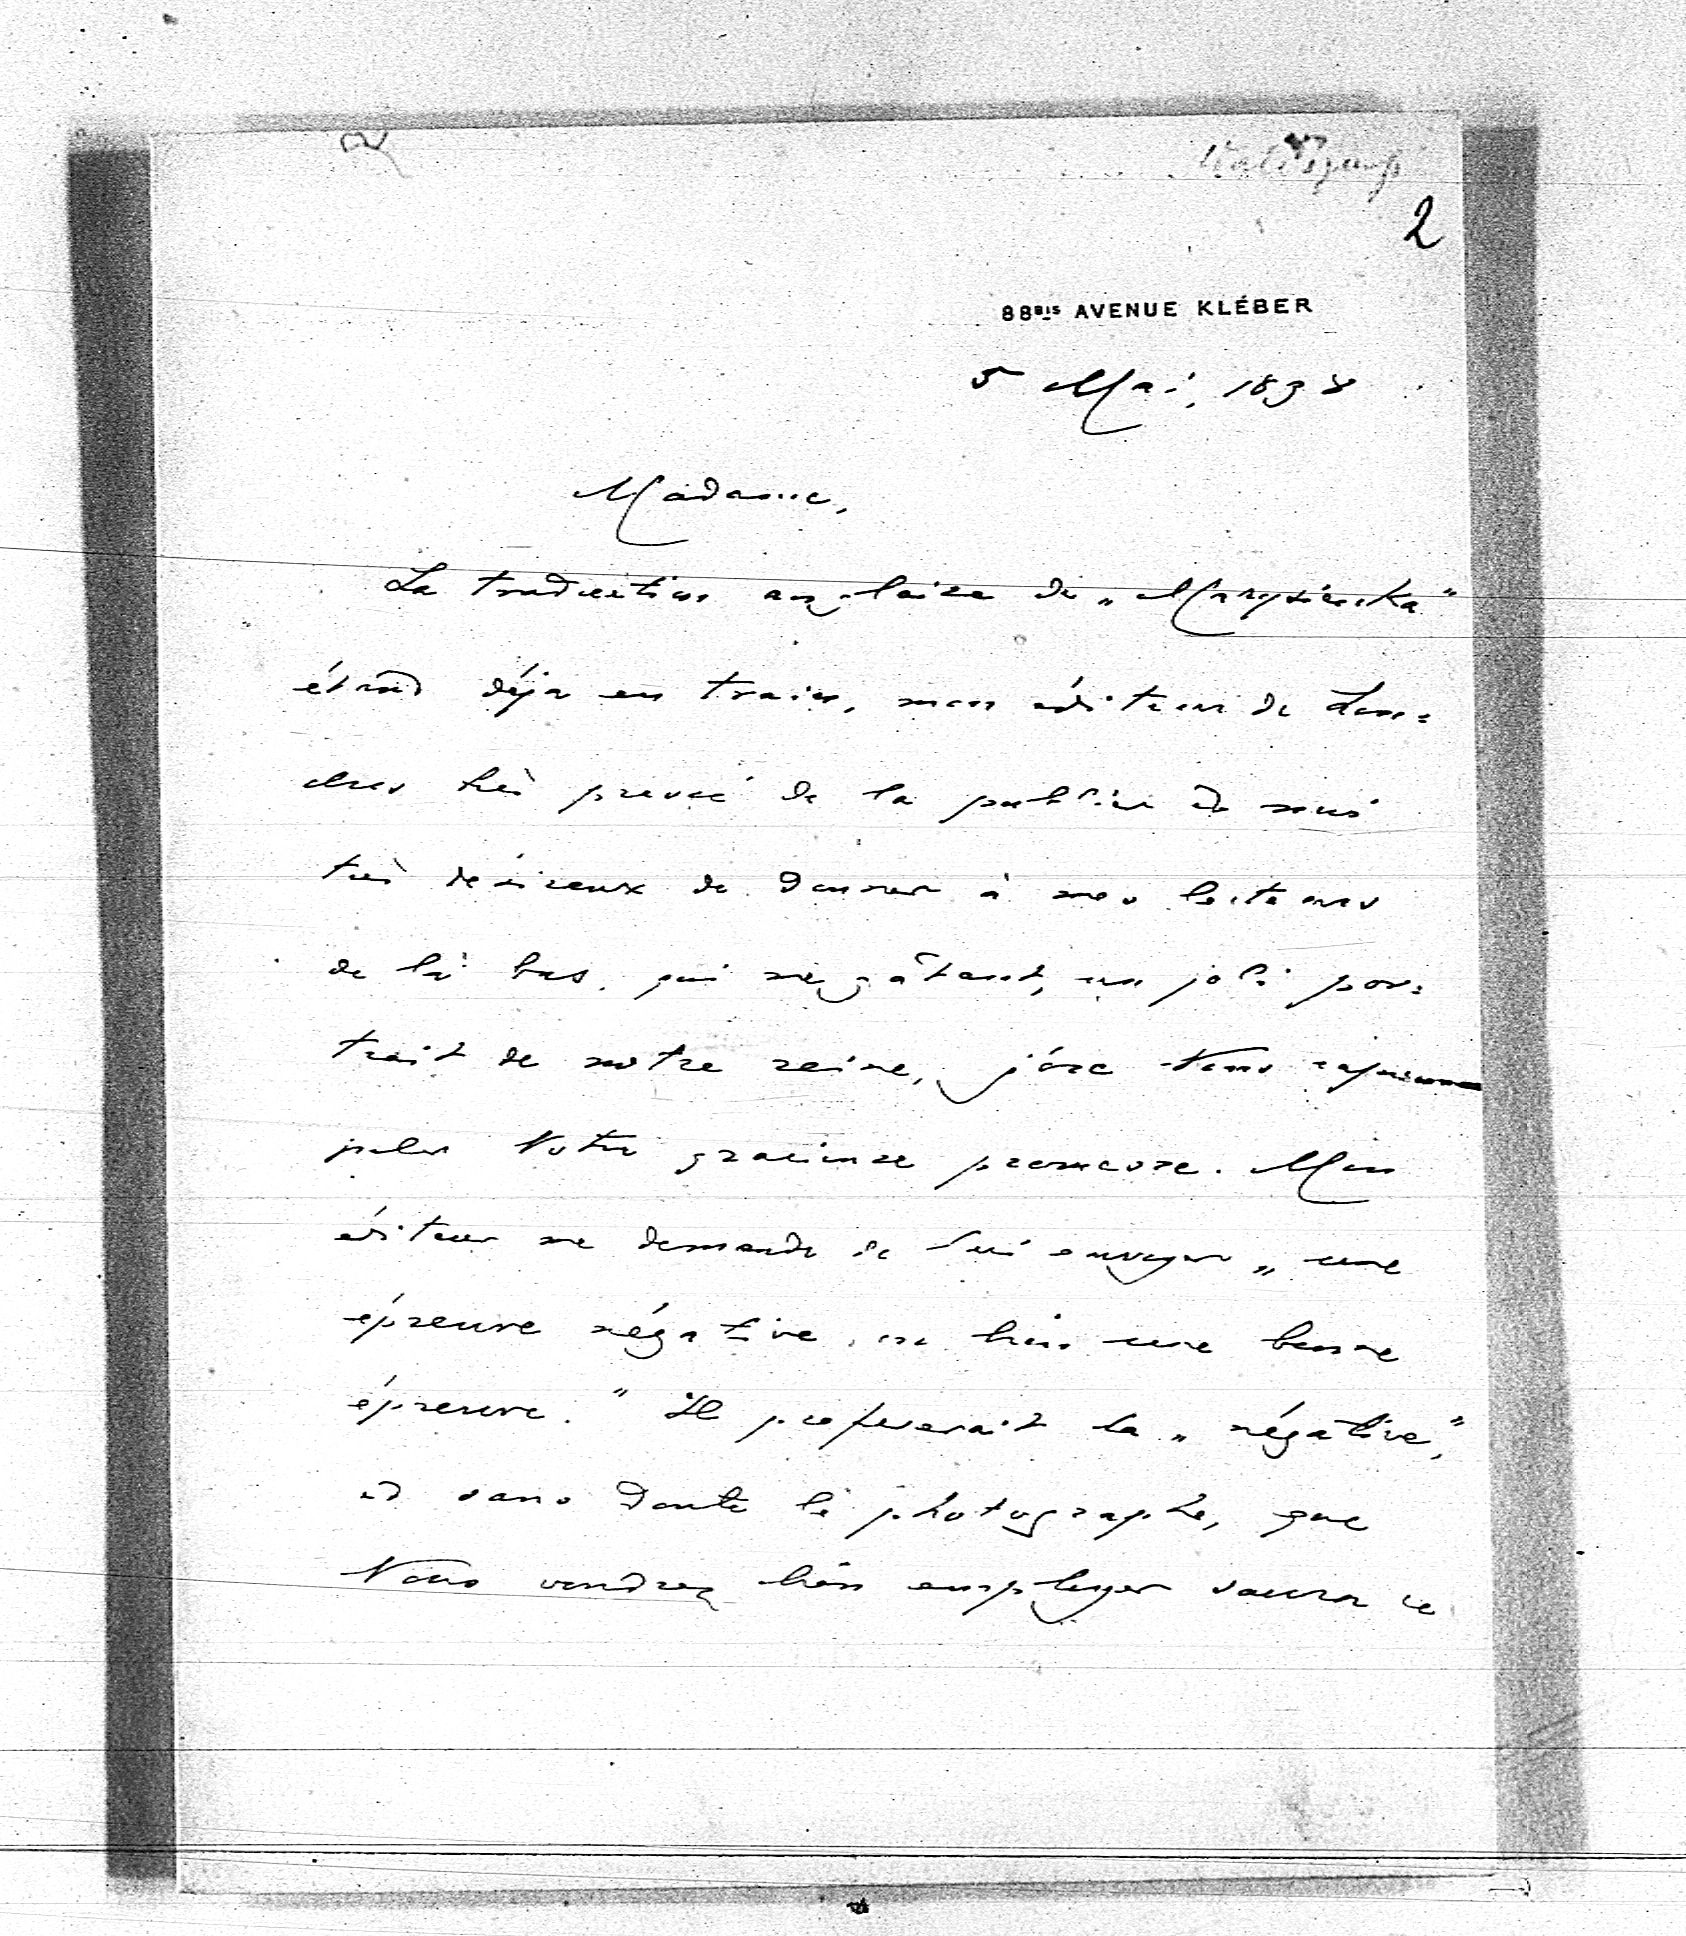 2
88BIS AVENUE KLÉBER
5 Mai, 1898
Madame,
La traduction anglaise de „Marysieńka“
étant déjà en train, mon éditeur de Lon=
dres très pressé de la publier et moi
très désireux de donner à mes lecteurs
de là bas, qui me gâtent, un joli por=
trait de notre reine, j'ose Vous
peler Votre gracieuse promesse. Mon
éditeur me demande de lui envoyer „une
épreuve négative, ou bien une bonne
épreuve.“ Il préfererait la „négative“,
et sans doute le photographe, que
Vous voudrez bien employer saura ce